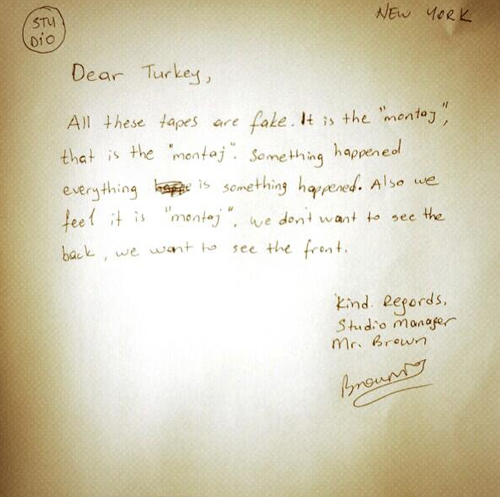 STU
DIO
NEW YORK
Dear Turkey,
All these tapes are fake. It is the "montaj",
that is the "montaj". Something happened
everything is something happened. Also we
feel it is "montaj". we don't want to see the
back, we want to see the front.
Kind. Regards,
Studio manager
Mr. Brown
Brown